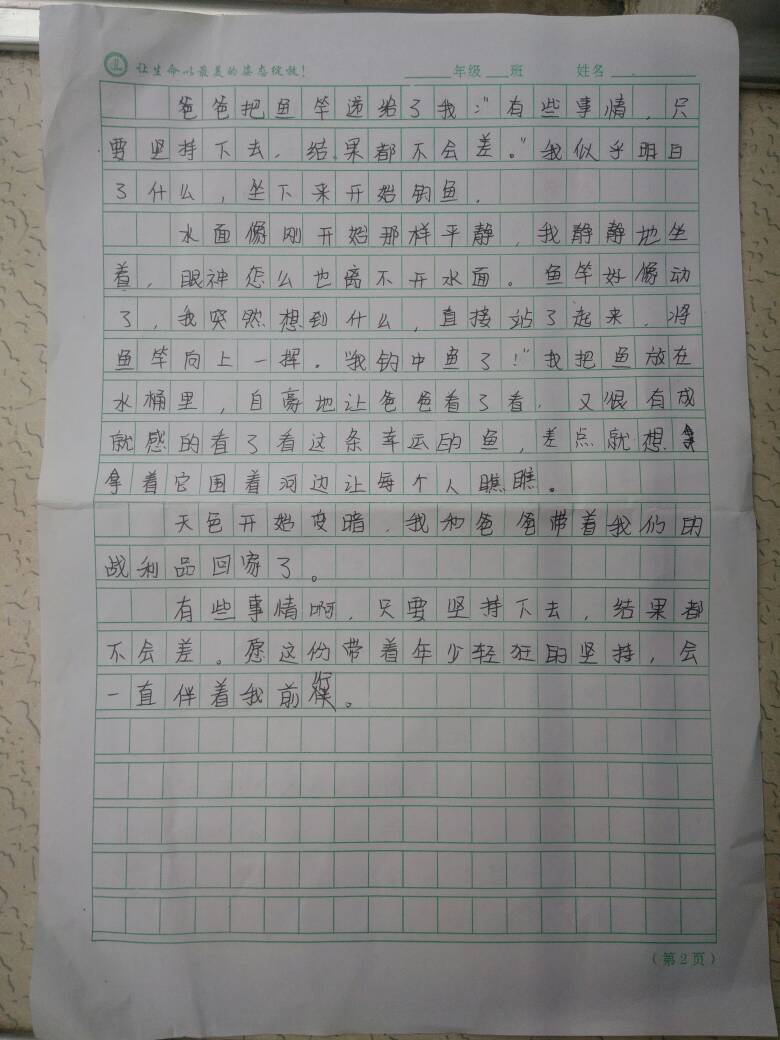 让生命以最美的姿态绽放！ ______年级___班 姓名______
爸爸把鱼竿递给了我：“有些事情，只
要坚持下去，结果都不会差。”我似乎明白
了什么，坐下来开始钓鱼．
水面像刚开始那样平静，我静静地坐
着，眼神怎么也离不开水面。鱼竿好像动
了，我突然想到什么，直接站了起来，将
鱼竿向上一挥．“我钓中鱼了！”我把鱼放在
水桶里，自豪地让爸爸看了看．又很有成
就感的看了看这条幸运的鱼，差点就想拿
拿着它围着河边让每个人瞧瞧。
天色开始变暗，我和爸爸带着我们的
战利品回家了。
有些事情啊，只要坚持下去，结果都
不会差。愿这份带着年少轻狂的坚持，会
一直伴着我前行。
（第2页）